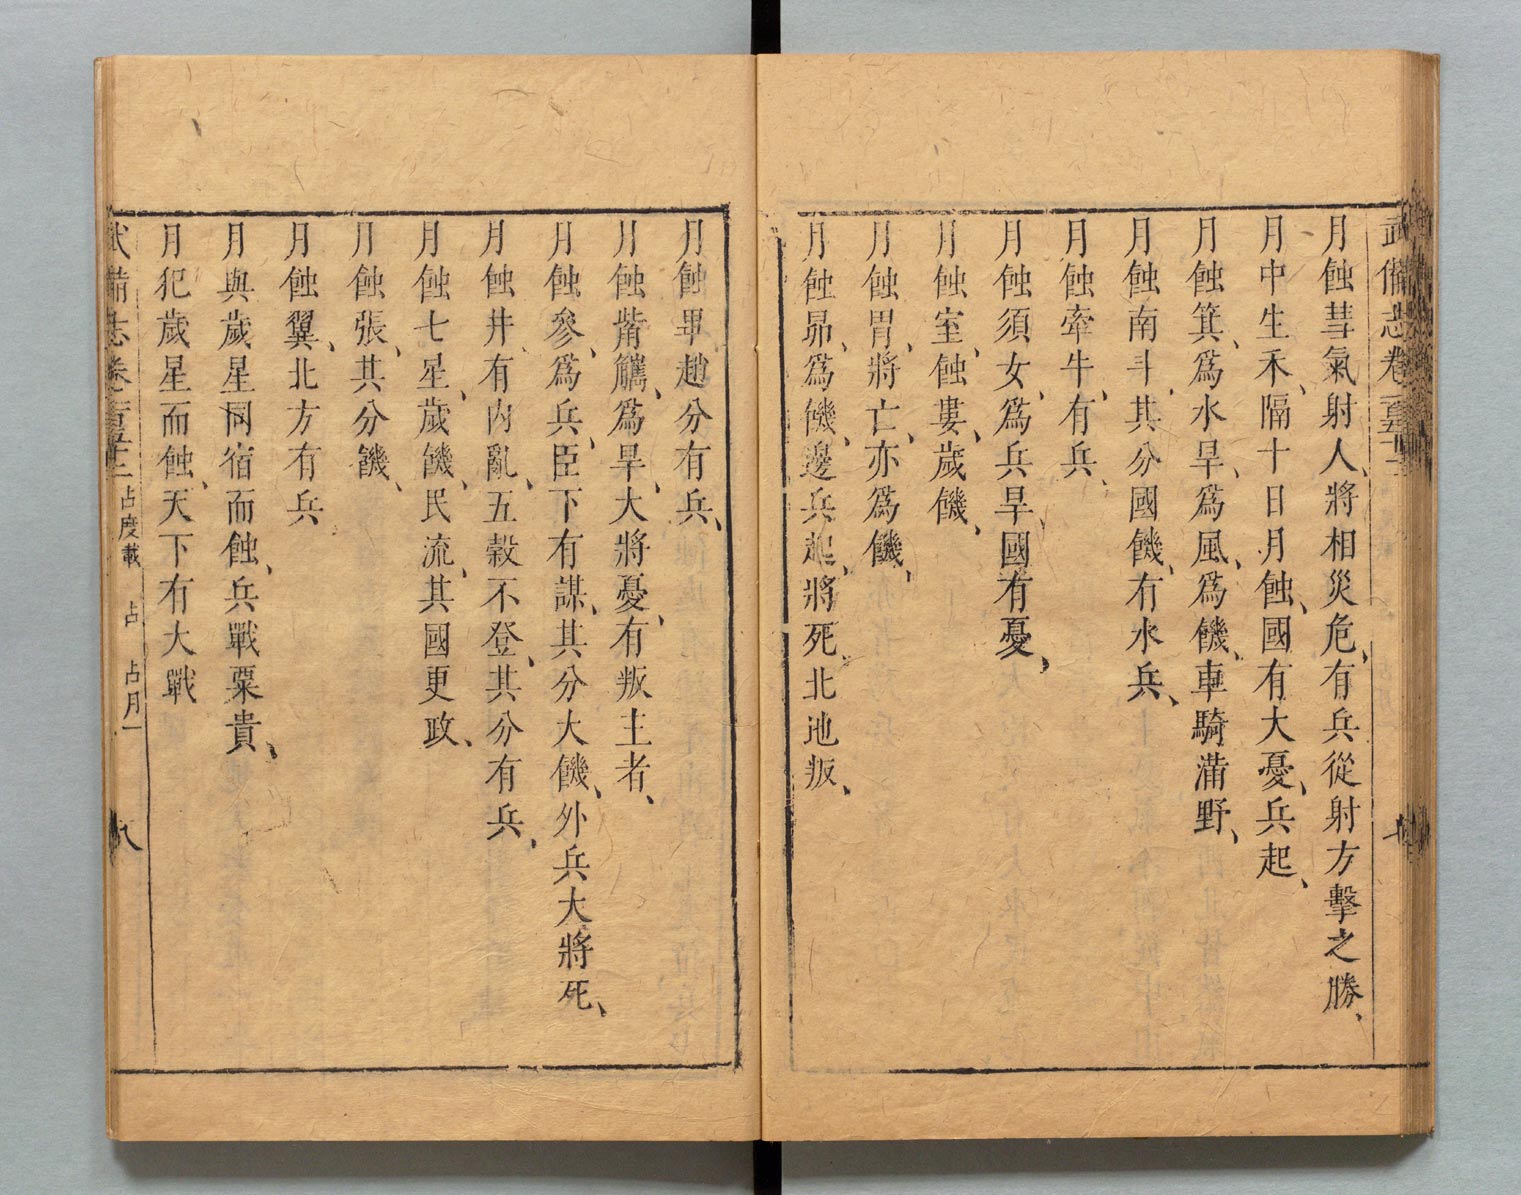 月蝕彗氣射人、將相災危、有兵從射方擊之勝、
月中生禾、隔十日月蝕、國有大憂、兵起、
月蝕箕、爲水旱、爲風、爲饑、車騎滿野、
月蝕南斗、其分國饑、有水兵、
月蝕牽牛、有兵、
月蝕須女、爲兵旱、國有憂、
月蝕室、蝕婁、歲饑、
月蝕胃、將亡、亦爲饑、
月蝕昴、爲饑、邊兵起、將死、北地叛、
月蝕畢、趙分有兵、
月蝕觜觿、爲旱、大將憂、有叛主者、
月蝕參、爲兵、臣下有謀、其分大饑、外兵大將死、
月蝕井、有內亂、五穀不登、其分有兵、
月蝕七星、歲饑、民流、其國更政、
月蝕張、其分饑、
月蝕翼、北方有兵
月與歲星同宿而蝕、兵戰粟貴、
月犯歲星而蝕、天下有大戰
武備志卷 占度載 占 占月一 八